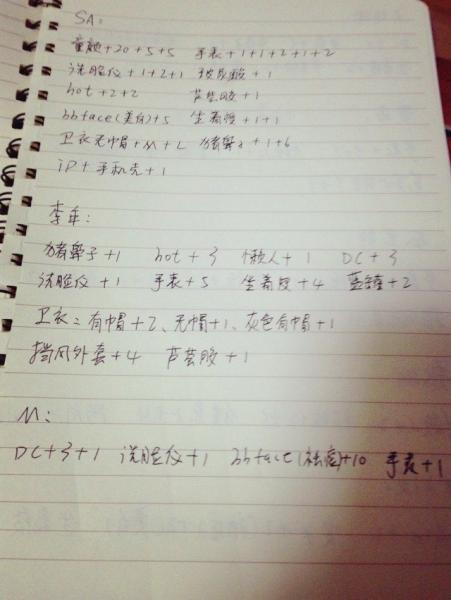 SA:
童颜+20+5+5 手表+1+1+2+1+2
洗脸仪+1+2+1 玻尿酸+1
hot+2+2 芦荟胶+1
bbface(美白)+5 坐着瘦+1+1
卫衣无帽+M+L 猪鼻子+1+6
iP+手机壳+1
李年:
猪鼻子+1 hot+3 懒人+1 DC+3
洗脸仪+1 手表+5 坐着瘦+4 蓝罐+2
卫衣:有帽+2、无帽+1、灰色有帽+1
挡风外套+4 芦荟胶+1
M:
DC+3+1 洗脸仪+1 bbface(祛痘)+10 手表+1